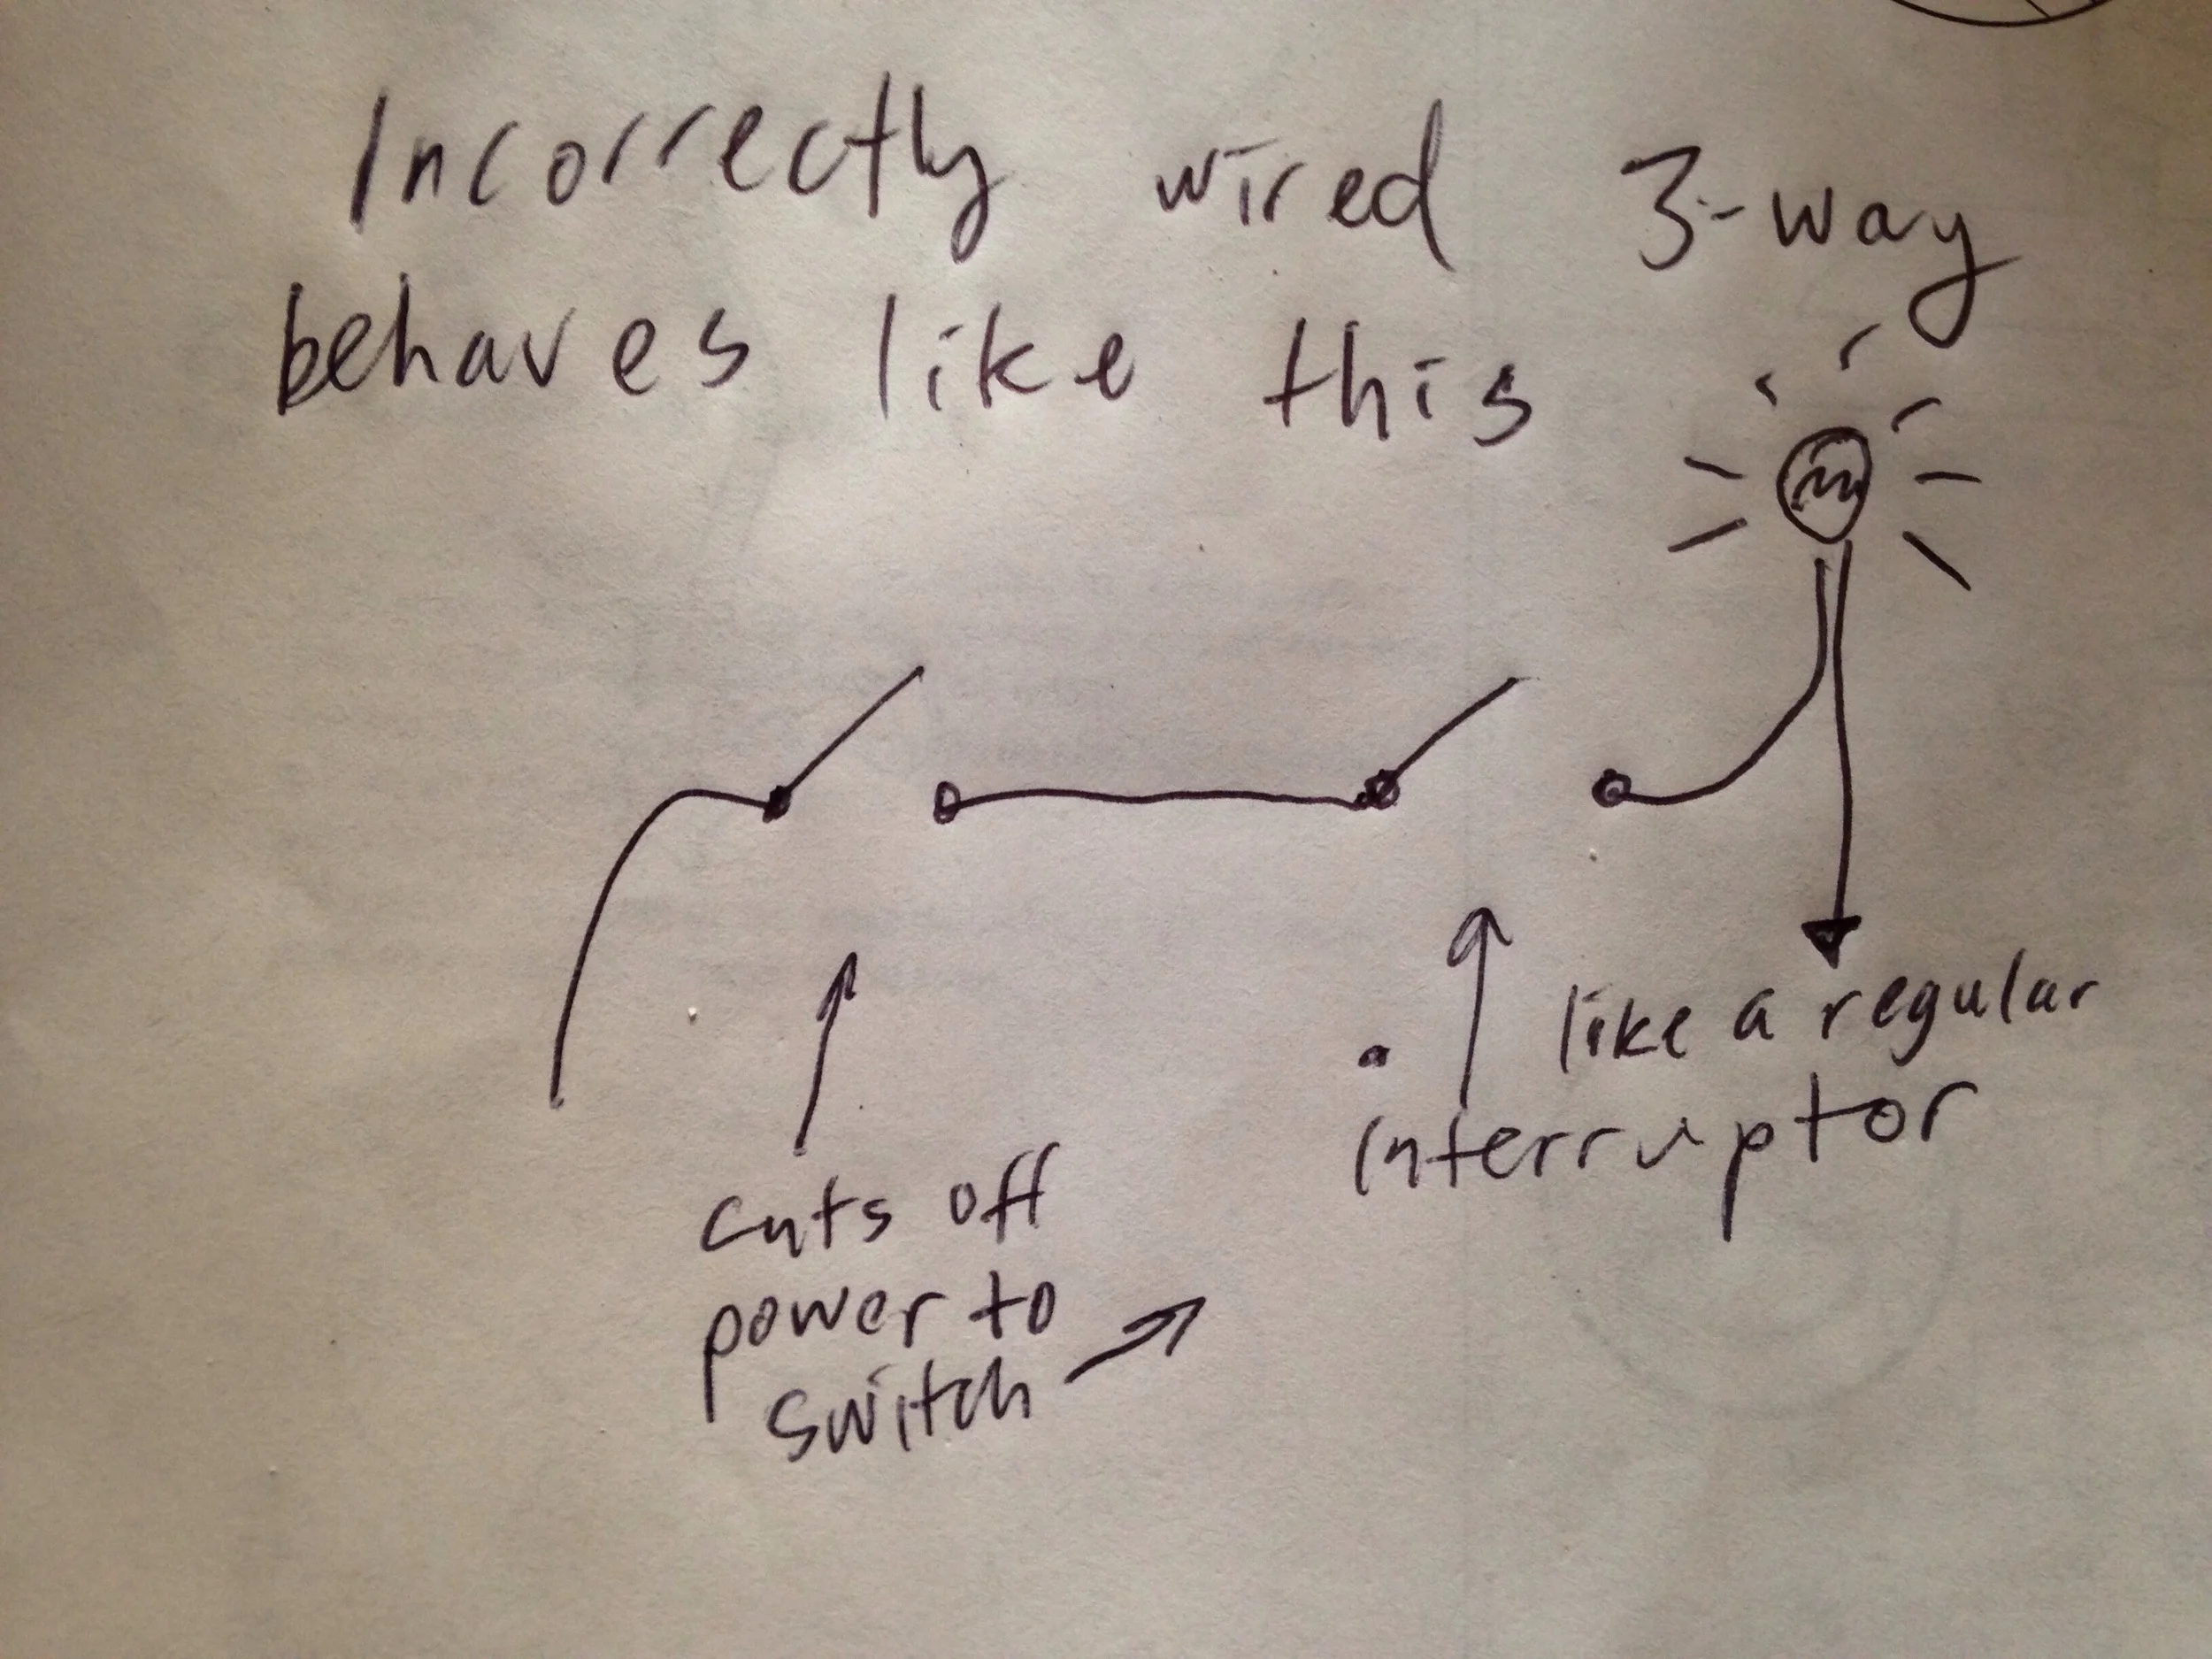 Incorrectly wired 3-way
behaves like this
cuts off
power to
switch
like a regular
interruptor